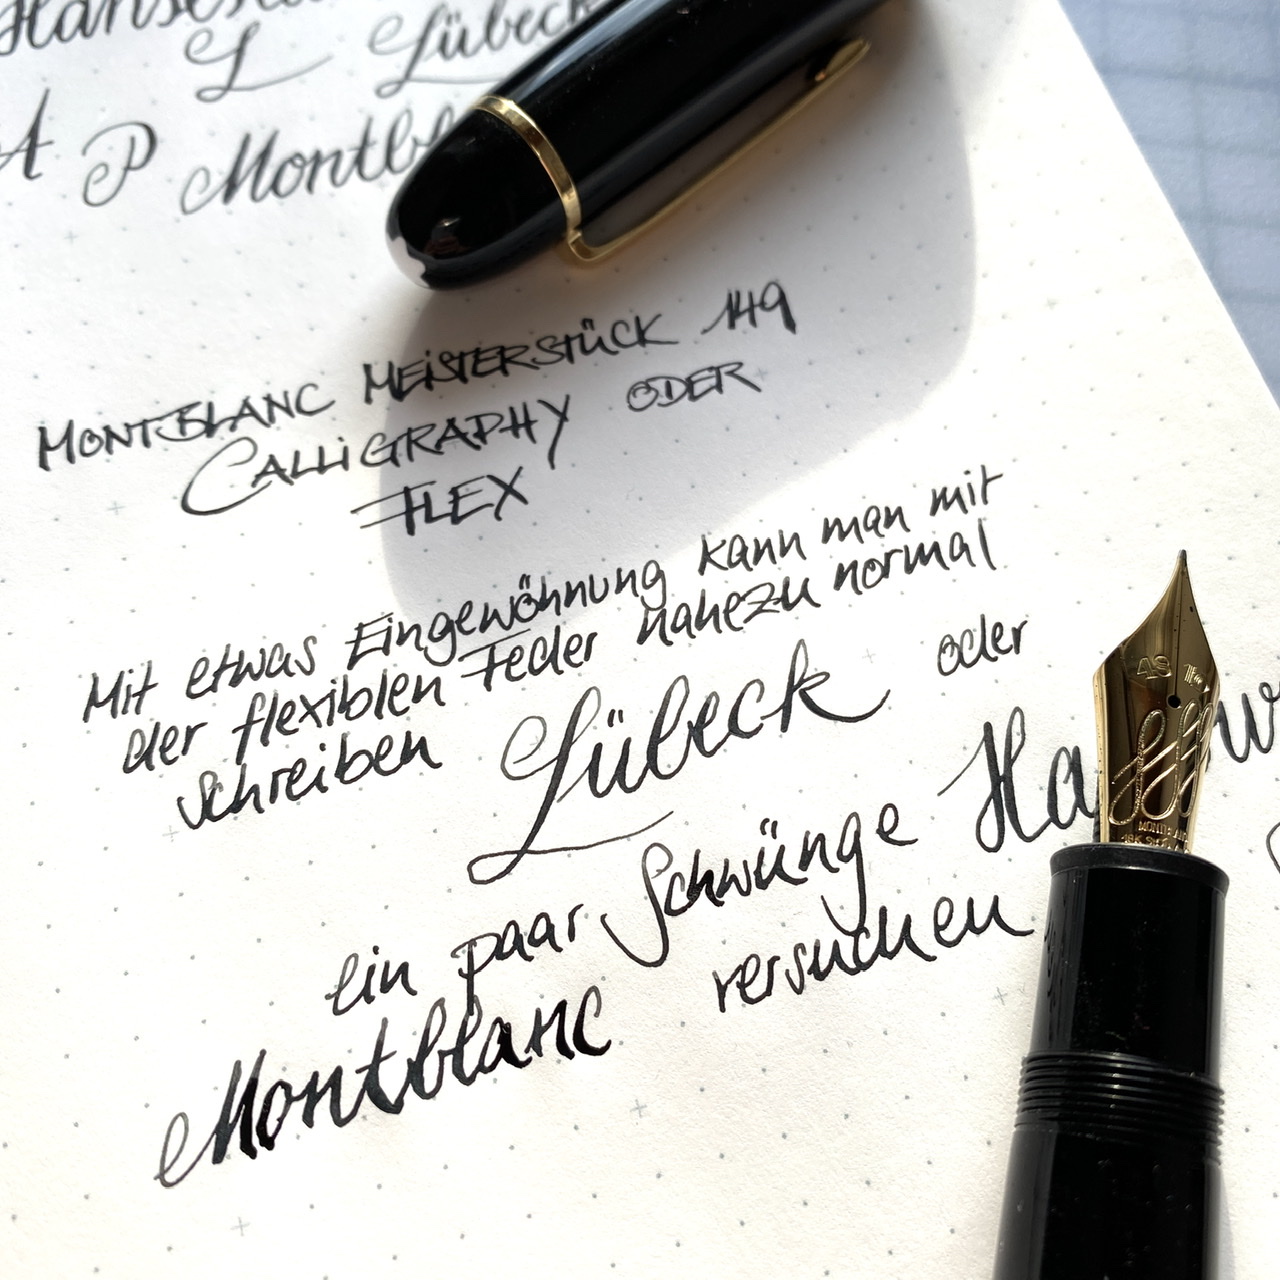 L Lübeck
A P
MONTBLANC MEISTERSTÜCK 149
CALLIGRAPHY ODER
FLEX
Mit etwas Eingewöhnung kann man mit
der flexiblen Feder nahezu normal
schreiben Lübeck oder
ein paar Schwünge
Montblanc versuchen